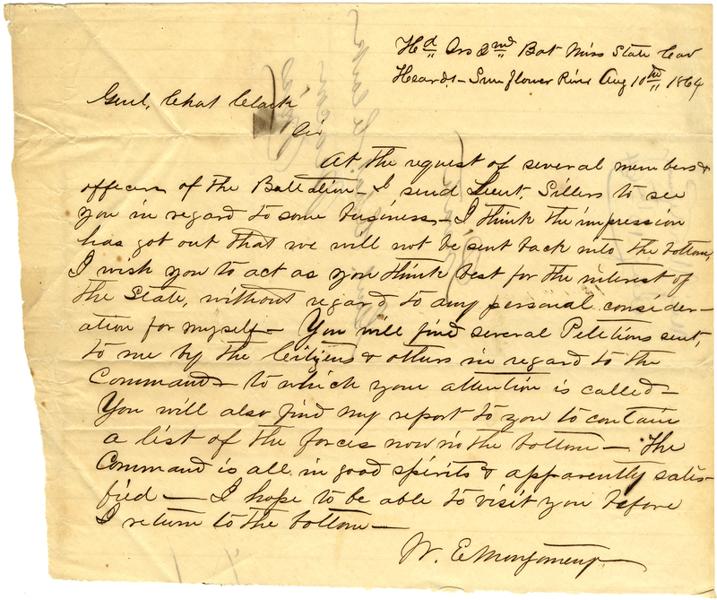 Hd Qrs 2nd Bat Miss State Cav
Heards - Sunflower River Aug 10th 1864
Genl. Chas Clark
Sir
At the request of several members &
officers of the Battalion I send Lieut. Sillers to see
you in regard to some business - I think the impression
has got out that we will not be sent back into the bottom,
I wish you to act as you think best for the interest of
the State, without regard to any personal consider-
ation for myself - You will find several Petitions sent,
to me by the Citizens & others in regard to the
Command - to which your attention is called -
You will also find my report to you to contain
a list of the forces now in the bottom - The
Command is all in good spirits & apparently satis-
fied - I hope to be able to visit you before
I return to the bottom -
W. E. Montgomery